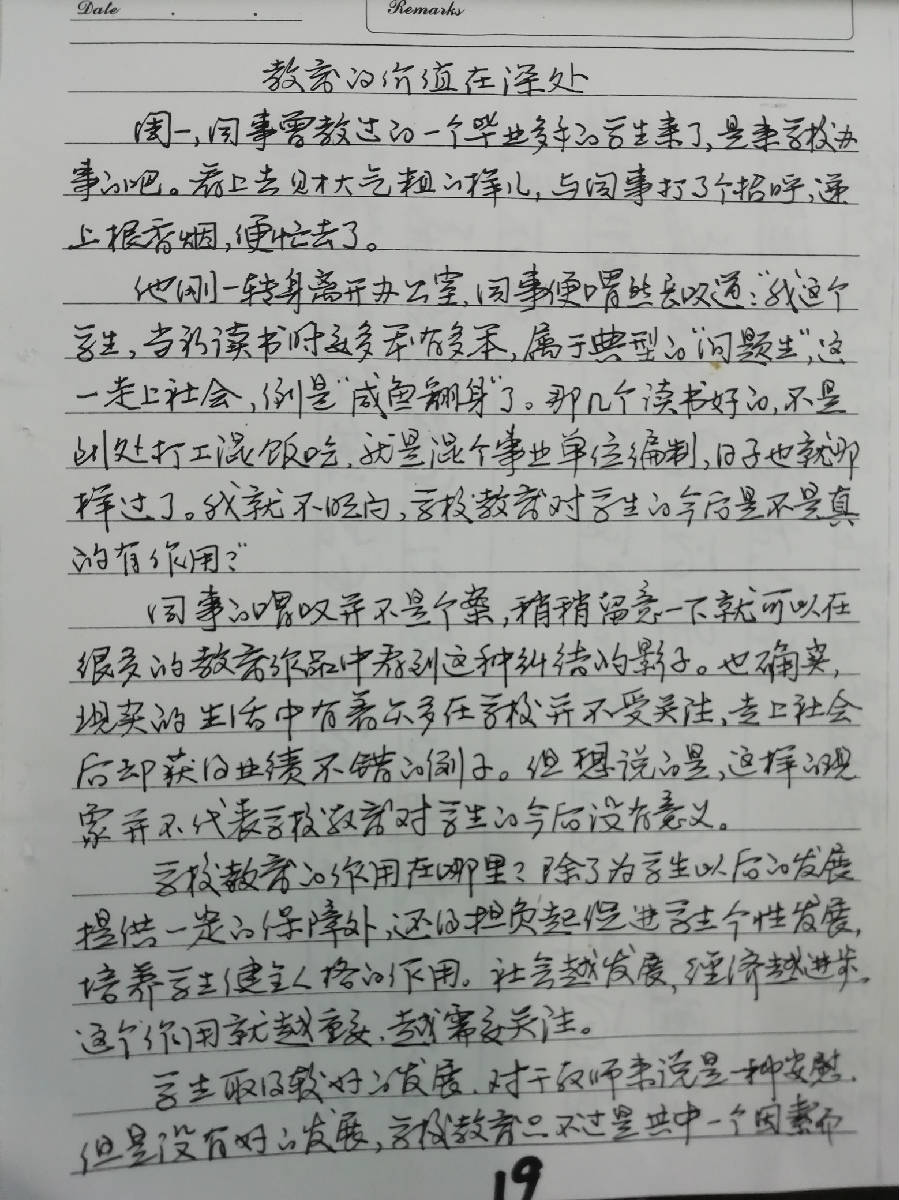 Date . .
Remarks
教育的价值在深处
周一,同事曾教过的一个毕业多年的学生来了,是来学校办
事的吧。看上去财大气粗的样儿,与同事打了个招呼,递
上根香烟,便忙去了。
他刚一转身离开办公室,同事便喟然长叹道:“我这个
学生,当初读书时要多笨有多笨,属于典型的“问题生”,这
一走上社会,倒是“咸鱼翻身”了。那几个读书好的,不是
到处打工混饭吃,就是混个事业单位编制,日子也就那
样过了。我就不明白,学校教育对学生的今后是不是真
的有作用?”
同事的喟叹并不是个案,稍稍留意一下就可以在
很多的教育作品中看到这种纠结的影子。也确实,
现实的生活中有着众多在学校并不受关注,走上社会
后却获得业绩不错的例子。但想说的是,这样的现
象并不代表学校教育对学生的今后没有意义。
学校教育的作用在哪里?除了为学生以后的发展
提供一定的保障外,还得担负起促进学生个性发展,
培养学生健全人格的作用。社会越发展,经济越进步,
这个作用就越重要,越需要关注。
学生取得较好的发展,对于教师来说是一种安慰,
但是没有好的发展,学校教育只不过是其中一个因素而
19